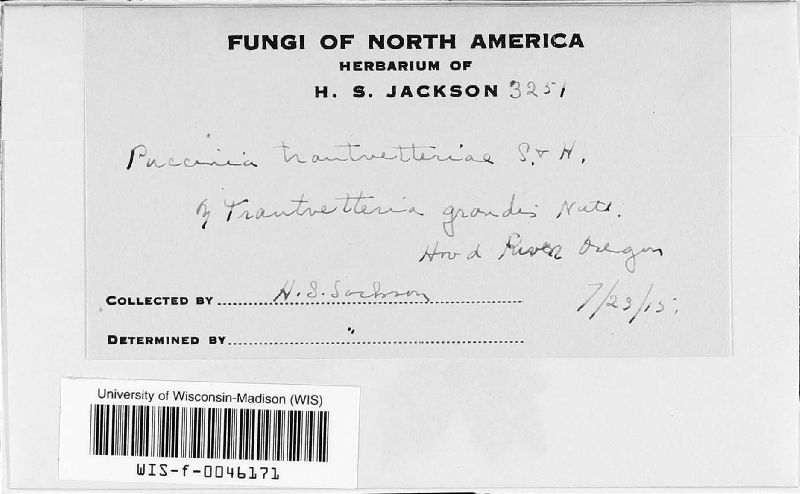 FUNGI OF NORTH AMERICA
HERBARIUM OF
H. S. JACKSON 3251
Puccinia trautvetteriae S. & H.
Trautvetteria grandis Nutt.
Hood River Oregon
COLLECTED BY H. S. Jackson 7/23/15.
DETERMINED BY "
University of Wisconsin-Madison (WIS)
WIS-f-0046171